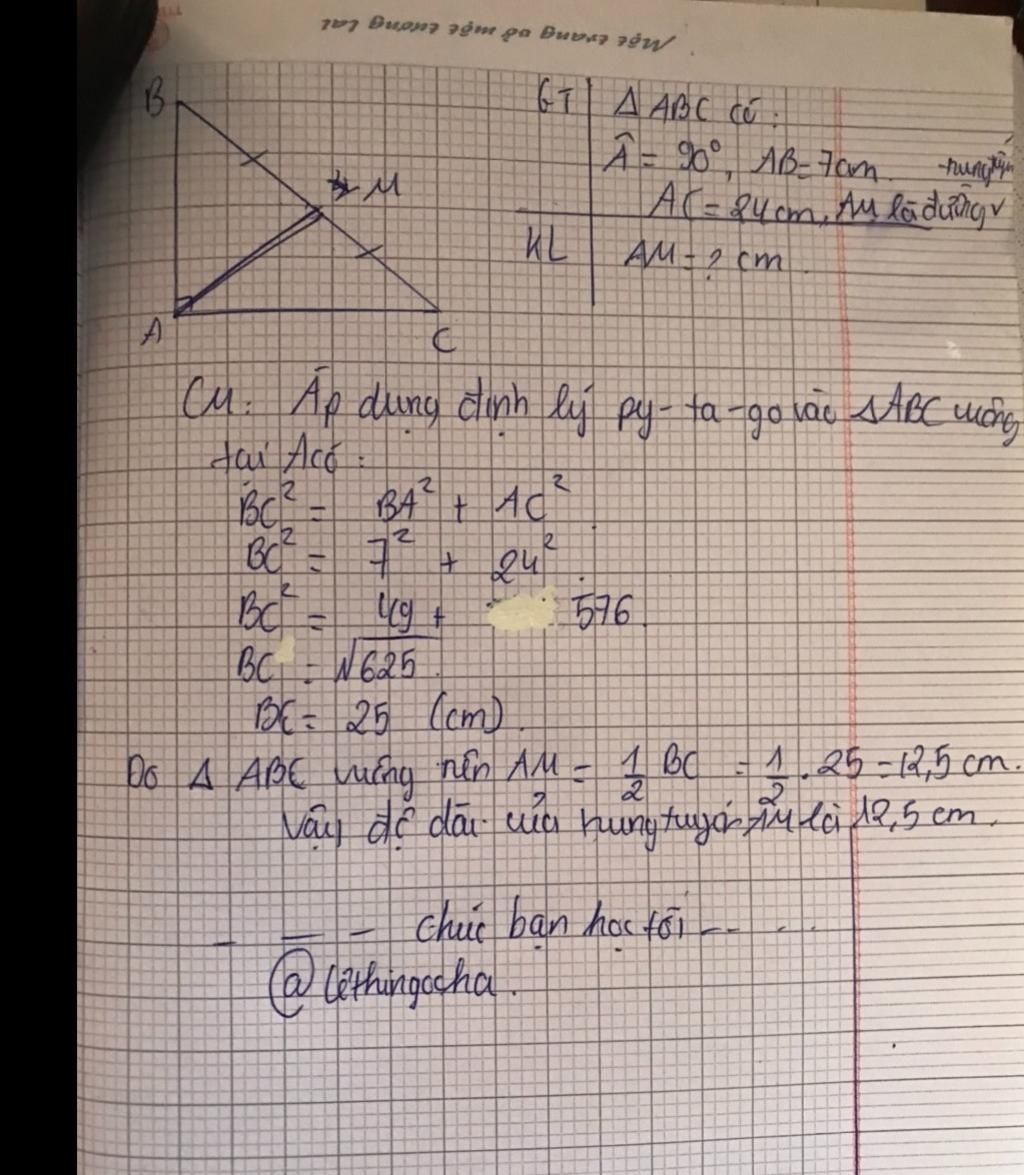 Một trang vở một tương lai
B
M
A
C
GT | Δ ABC có:
Â = 90°, AB = 7cm. trung tuyến
AC = 24 cm, AM là đường
KL | AM = ? cm
CM: Áp dụng định lý py-ta-go vào Δ ABC vuông
tại A có:
BC² = BA² + AC²
BC² = 7² + 24².
BC² = 49 + 576.
BC = √625.
BC = 25 (cm).
Do Δ ABC vuông nên AM = 1/2 BC = 1/2 . 25 = 12,5 cm.
Vậy độ dài của trung tuyến AM là 12,5 cm.
- — - chúc bạn học tốt - - . . .
@lethingocha.